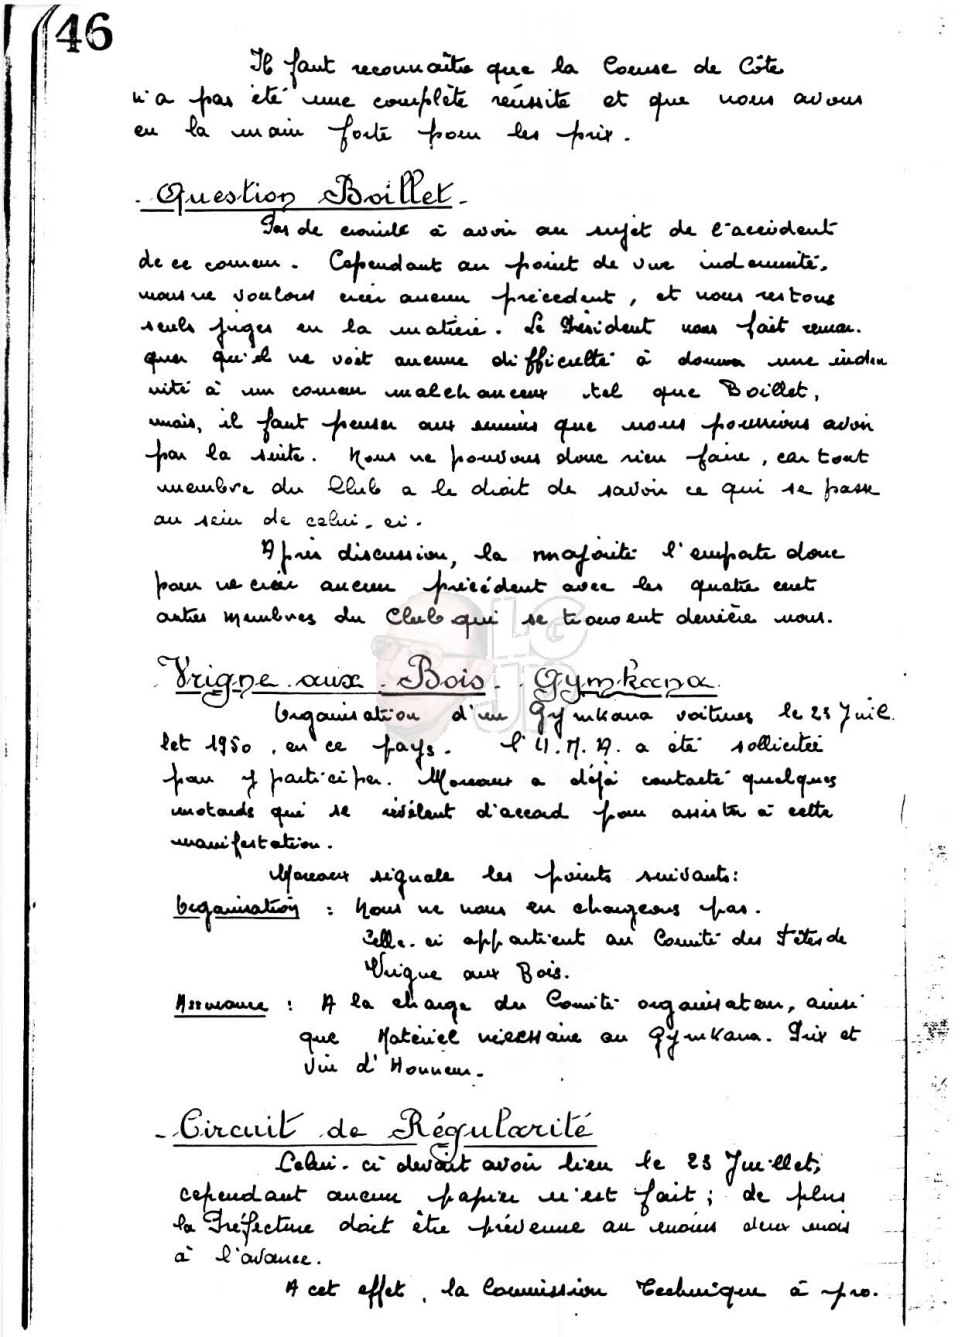 46
Il faut reconnaître que la Course de Côte
n'a pas été une complète réussite et que nous avons
eu la main forte pour les prix.
- Question Boillet -
Pas de crainte à avoir au sujet de l'accident
de ce coureur. Cependant au point de vue indemnité,
nous ne voulons créer aucun précédent, et nous restons
seuls juges en la matière. Le Président nous fait remar-
quer qu'il ne voit aucune difficulté à donner une indem
nité à un coureur malchanceux tel que Boillet,
mais, il faut penser aux ennuis que nous pourrions avoir
par la suite. Nous ne pouvons donc rien faire, car tout
membre du Club a le droit de savoir ce qui se passe
au sein de celui-ci.
Après discussion, la majorité l'emporte donc
pour ne créer aucun précédent avec les quatre cent
autres membres du Club qui se trouvent derrière nous.
LG
JP
Vrigne aux Bois - Gymkana
Organisation d'un Gymkana voitures le 23 Juil-
let 1950, en ce pays. l'U.M.A. a été sollicitée
pour y participer. Moreaux a déjà contacté quelques
motards qui se révèlent d'accord pour assister à cette
manifestation.
Moreaux signale les points suivants :
Organisation : Nous ne nous en chargeons pas.
Celle-ci appartient au Comité des Fêtes de
Vrigne aux Bois.
Assurance : A la charge du Comité organisateur, ainsi
que Matériel nécessaire au Gymkana. Prix et
Vin d'Honneur.
- Circuit de Régularité
Celui-ci devait avoir lieu le 23 Juillet;
cependant aucun papier n'est fait ; de plus
la Préfecture doit être prévenue au moins deux mois
à l'avance.
A cet effet, la Commission Technique à pro-